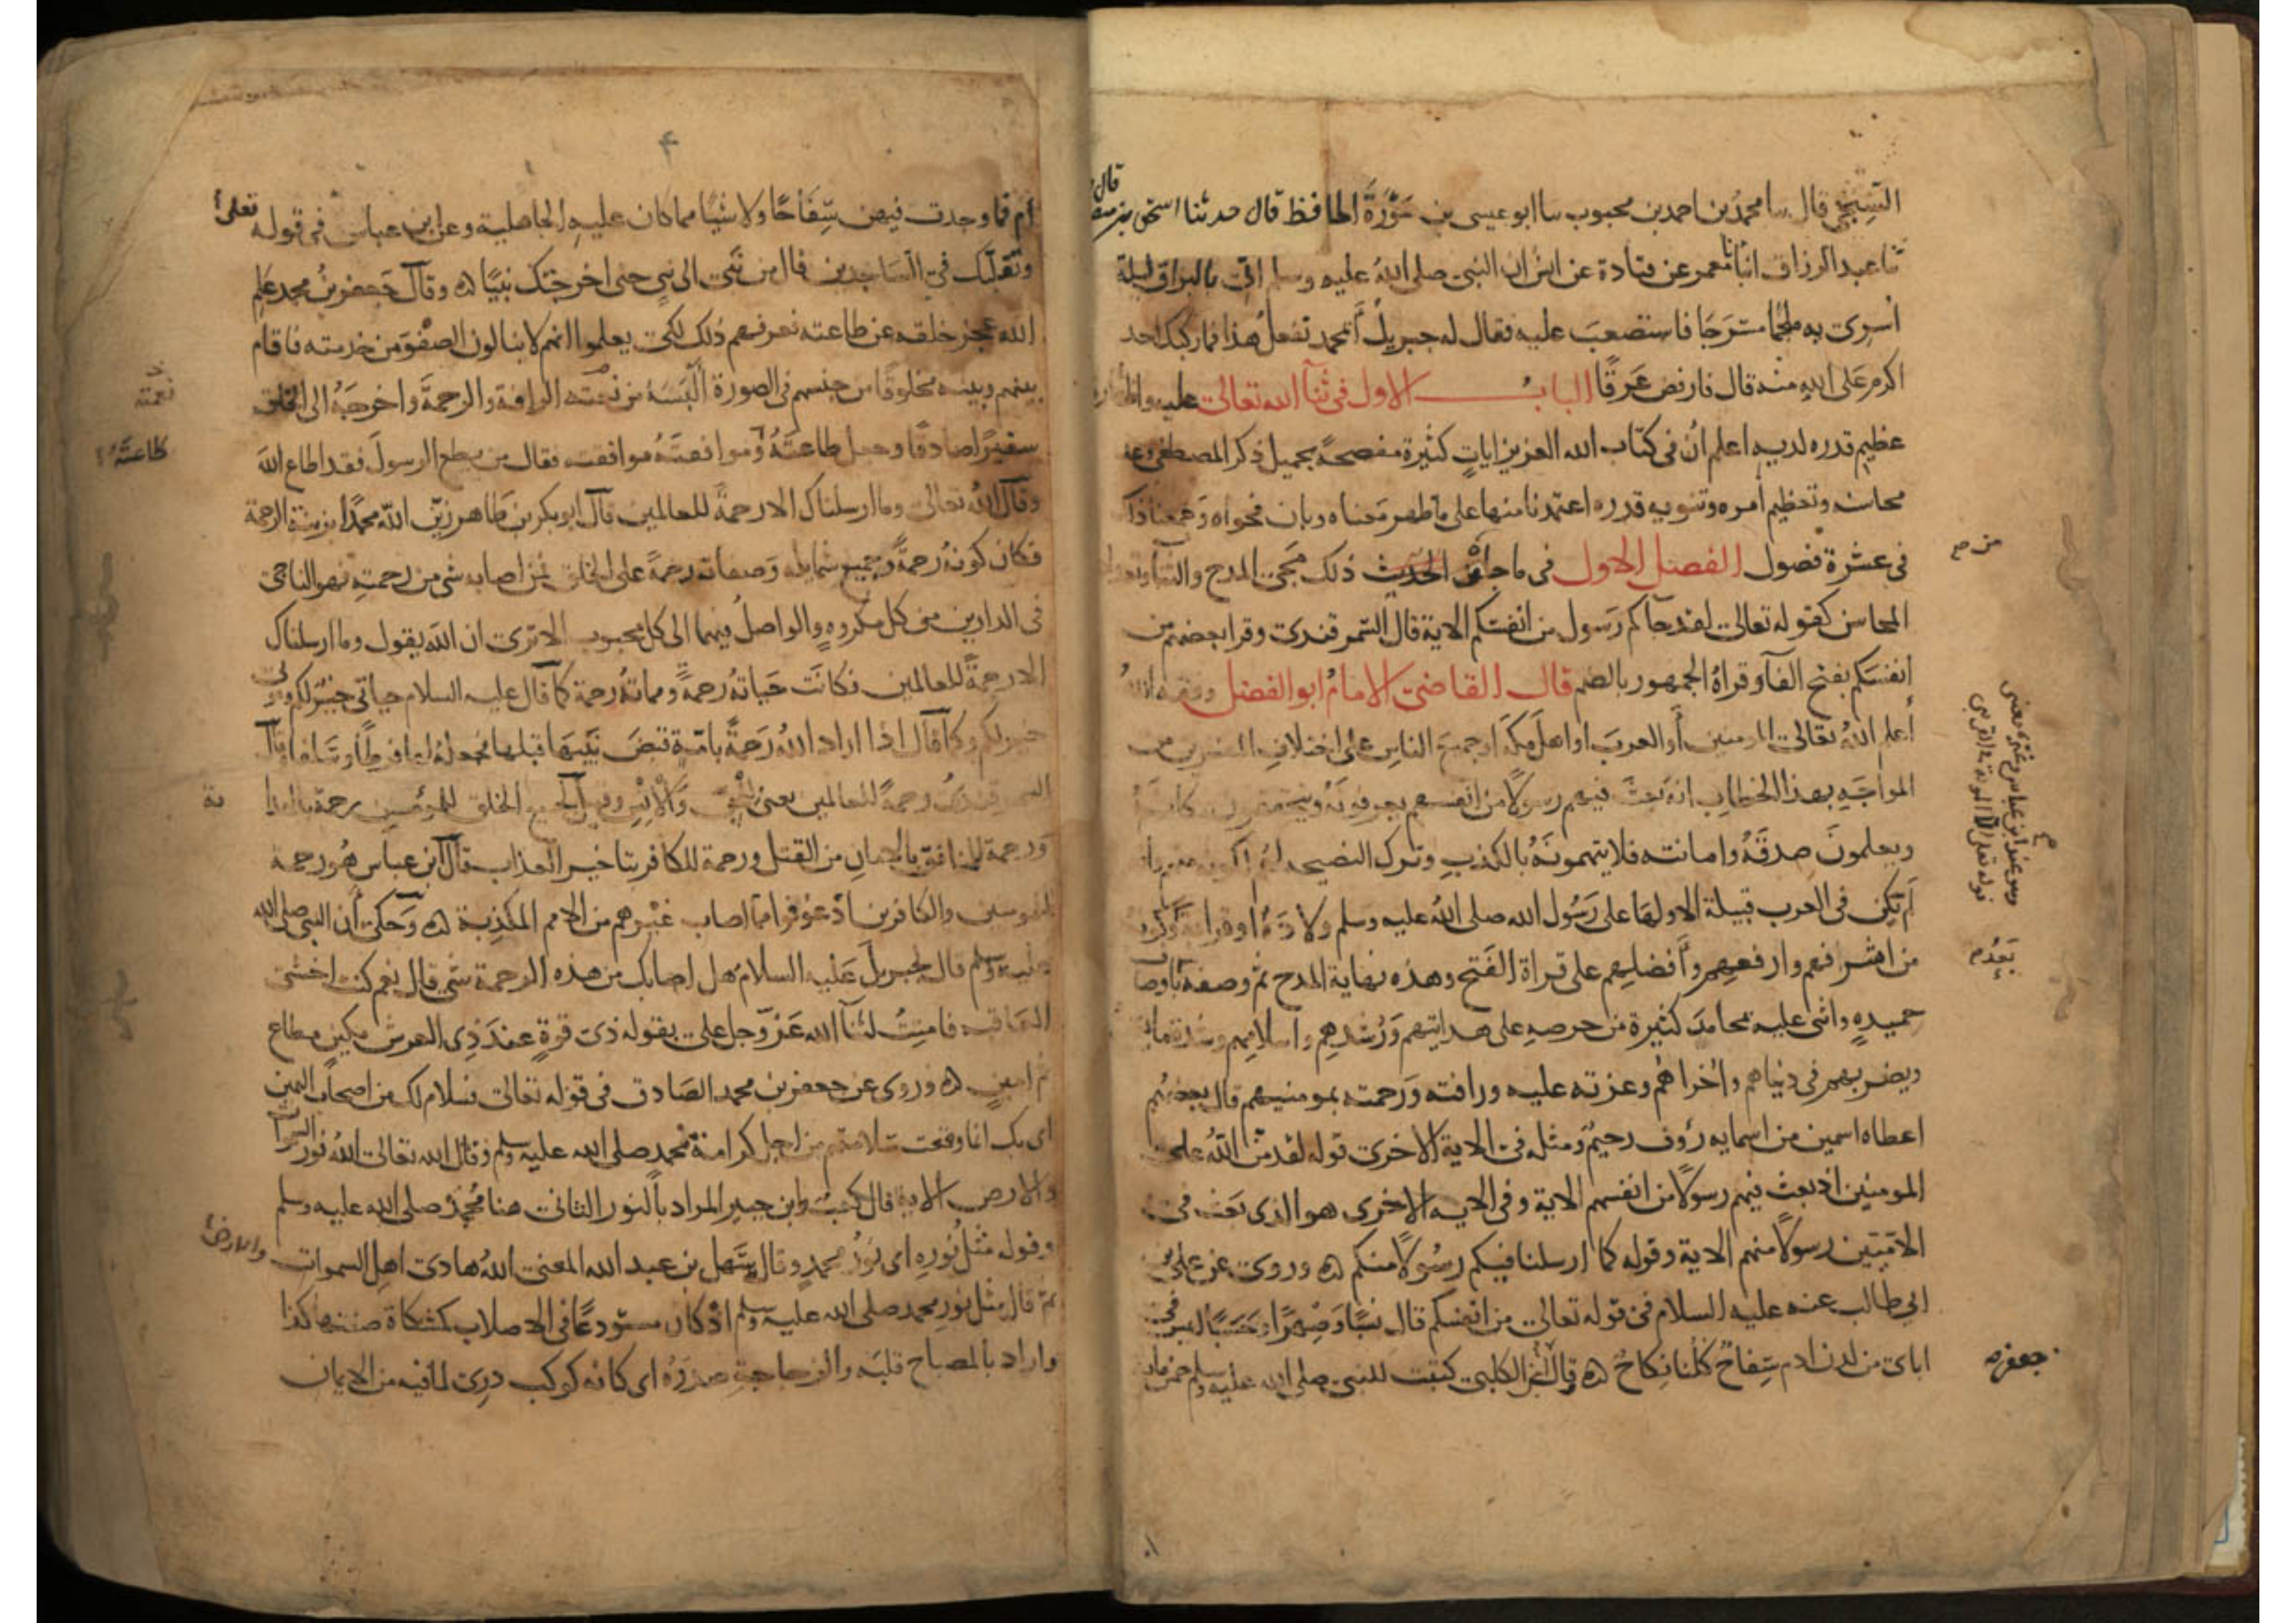 السنجي قال سا محمد بن احمد بن محبوب سا ابو عيسى بن سورة الحافظ قال حدثنا اسحق بن
ثنا عبد الرزاق انبأنا معمر عن قتادة عن انس ان النبي صلى الله عليه وسلم اتي بالبراق ليلة
اسري به ملجما مسرجا فاستصعب عليه فقال له جبريل أبمحمد تفعل هذا فما ركبك احد
اكرم على الله منه قال فارفض عرقا الباب الاول في ثنآ الله تعالى عليه واظهار
عظيم قدره لديه اعلم ان في كتاب الله العزيز ايات كثيرة مفصحة بجميل ذكر المصطفى وعد
محاسنه وتعظيم أمره وتنويه قدره اعتمدنا منها على ما ظهر معناه وبان فحواه وجمعنا ذلك
في عشرة فصول الفصل الاول في ما جآ من ذلك مجي المدح والثنآ وتعداد
المحاسن كقوله تعالى لقد جآكم رسول من انفسكم الاية قال السمرقندي وقرا بعضهم من
انفسكم بفتح الفآ وقراة الجمهور بالضم قال القاضي الامام ابو الفضل وفقه الله
أعلم الله تعالى المومنين أو العرب او اهل مكة او جميع الناس على اختلاف المفسرين من
المواجه بهذا الخطاب انه بعث فيهم رسولا من انفسهم يعرفونه ويتحققون مكانه
ويعلمون صدقه وامانته فلا يتهمونه بالكذب وترك النصيحة لهم
لم تكن في العرب قبيلة الا ولها على رسول الله صلى الله عليه وسلم ولادة او قرابة وكونه
من اشرفهم وارفعهم وأفضلهم على قراة الفتح وهذه نهاية المدح ثم وصفه بأوصاف
حميدة واثنى عليه بمحامد كثيرة من حرصه على هدايتهم ورشدهم واسلامهم وشدة ما
ويضر بهم في دنياهم واخراهم وعزته عليه ورافته ورحمته بمومنيهم قال بعضهم
اعطاه اسمين من اسمايه رؤف رحيم ومثله في الاية الاخرى قوله لقد من الله على
المومنين اذ بعث فيهم رسولا من انفسهم الاية وفي الاية الاخرى هو الذي بعث في
الاميين رسولا منهم الاية وقوله كما ارسلنا فيكم رسولا منكم ه وروي عن علي
ابي طالب عنه عليه السلام في قوله تعالى من انفسكم قال نسبا وصهرا وحسبا ليس في
اباي من لدن ادم سفاح كلنا نكاح ه قال ابن الكلبي كتبت للنبي صلى الله عليه وسلم خمس ماية
من صح
جعفر ه
أم فما وجدت فيهن سفاحا ولا شيا مما كان عليه الجاهلية وعن ابن عباس في قوله تعالى
وتقلبك في الساجدين قال من نبي الى نبي حتى اخرجتك نبيا ه وقال جعفر بن محمد علم
الله عجز خلقه عن طاعته فعرفهم ذلك لكي يعلموا انهم لا ينالون الصفو من خدمته فاقام
بينهم وبينه مخلوقا من جنسهم في الصورة البسه من نعته الرافة والرحمة واخرجه الى الخلق
سفيرا صادقا وجعل طاعته وموافقته موافقته فقال من يطع الرسول فقد اطاع الله
وقال الله تعالى وما ارسلناك الا رحمة للعالمين قال ابو بكر بن طاهر زين الله محمدا بزينة الرحمة
فكان كونه رحمة وجميع شمايله وصفاته رحمة على الخلق فمن اصابه شي من رحمته فهو الناجي
في الدارين من كل مكروه والواصل فيهما الى كل محبوب الا ترى ان الله يقول وما ارسلناك
الا رحمة للعالمين فكانت حياته رحمة ومماته رحمة كما قال عليه السلام حياتي خير لكم وموتي
خير لكم وكما قال اذا اراد الله رحمة بامة قبض نبيها قبلها فجعله لها فرطا وسلفا وقال
السمرقندي رحمة للعالمين يعني للجن والانس وقيل لجميع الخلق للمومنين رحمة بالهداية
ورحمة للمنافق بالامان من القتل ورحمة للكافر بتاخير العذاب قال ابن عباس هو رحمة
للمومنين والكافرين اذ عوفوا مما اصاب غيرهم من الامم المكذبة ه وحكي أن النبي صلى الله
عليه وسلم قال لجبريل عليه السلام هل اصابك من هذه الرحمة شي قال نعم كنت اخشى
العاقبة فامنت لثنآ الله عز وجل علي بقوله ذي قوة عند ذي العرش مكين مطاع
ثم امين ه وروي عن جعفر بن محمد الصادق في قوله تعالى فسلام لك من اصحاب اليمين
اي بك انما وقعت سلامتهم من اجل كرامة محمد صلى الله عليه وسلم وقال الله تعالى الله نور السموات
والارض الاية قال كعب وابن جبير المراد بالنور الثاني هنا محمد صلى الله عليه وسلم
وقوله مثل نوره اي نور محمد وقال سهل بن عبد الله المعنى الله هادي اهل السموات والارض
ثم قال مثل نور محمد صلى الله عليه وسلم اذ كان مستودعا في الاصلاب كمشكاة صفتها كذا
واراد بالمصباح قلبه والزجاجة صدره اي كانه كوكب دري لما فيه من الايمان
نعمته
طاعته